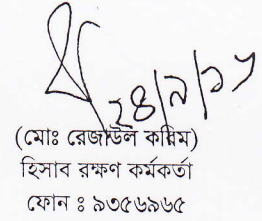 ২৪/৯/১৭
(মোঃ রেজাউল করিম)
হিসাব রক্ষণ কর্মকর্তা
ফোন ঃ ৯৩৫৬৯৬৫